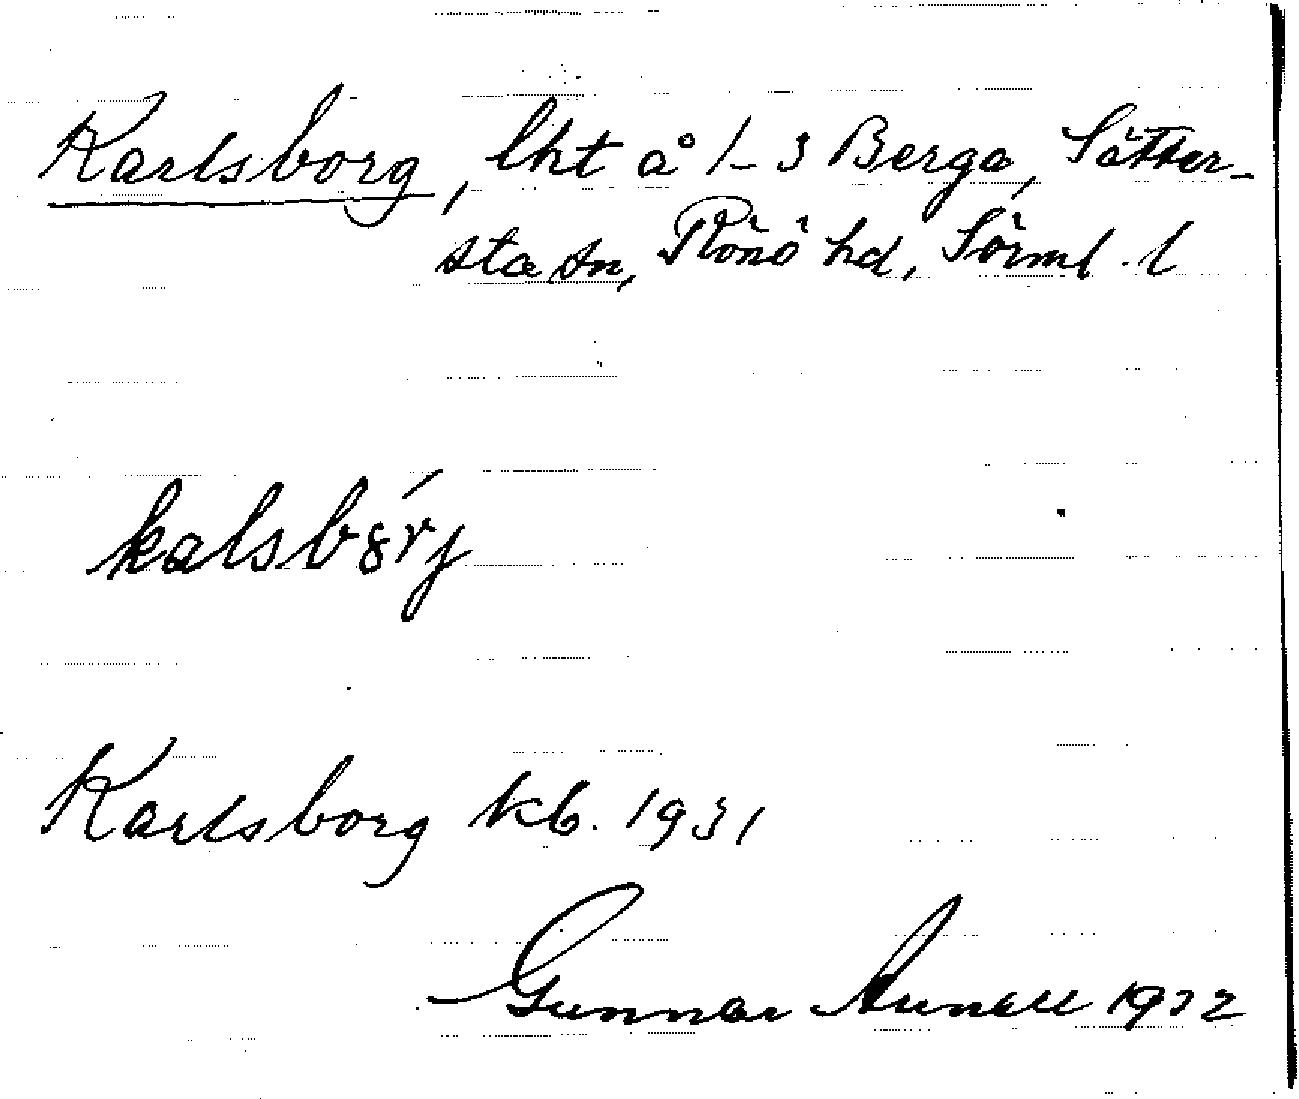 Karlsborg, lht å 1-3 Berga, Sätter-
sta sn, Rönö hd, Sörml. l
Karlsborg kb. 1931
Gunnar 1932